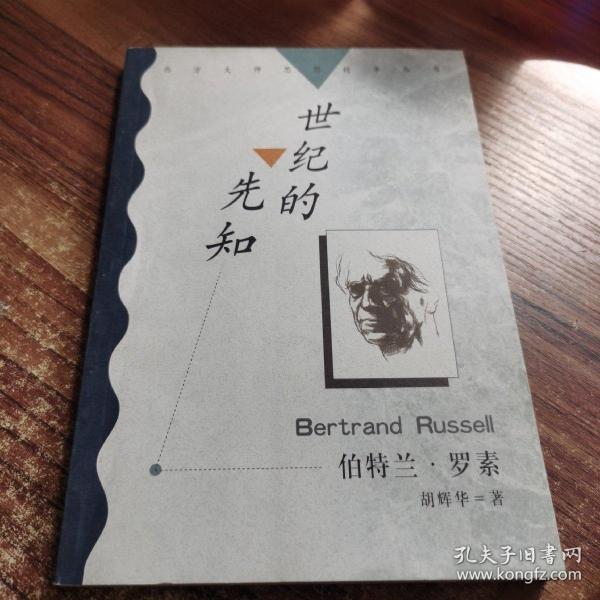 西方大师思想精华丛书
世纪的
先知
Bertrand Russell
伯特兰·罗素
胡辉华=著
孔夫子旧书网
www.kongfz.com